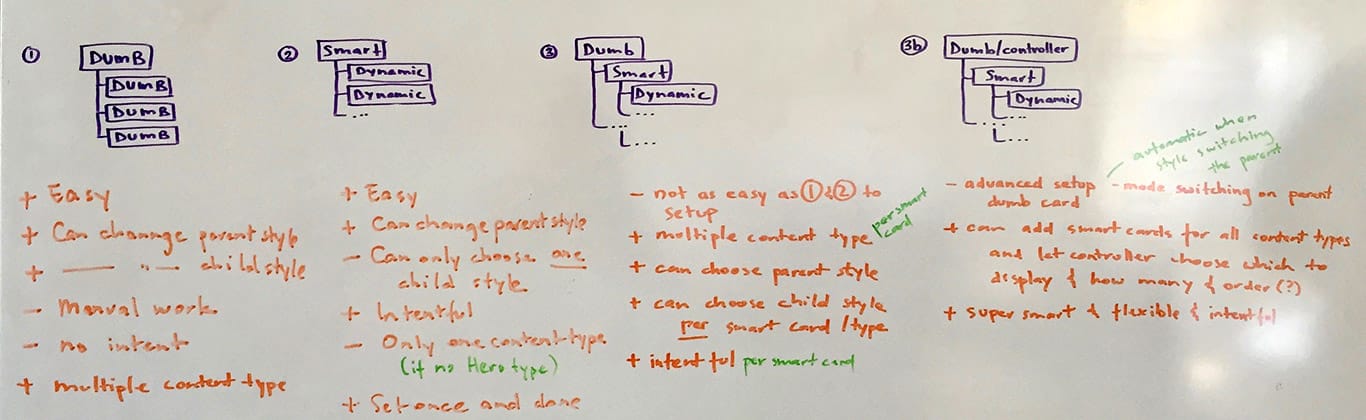 ①
DumB
DumB
DumB
DumB
+ Easy
+ Can channge parent style
+ —— " — child style
- Manual work
- no intent
+ multiple content type
②
Smart
Dynamic
Dynamic
...
+ Easy
+ Can change parent style
- Can only choose one
child style
+ Intentful
- Only one content type
(if no Hero type)
+ Set once and done
③
Dumb
Smart
Dynamic
...
...
...
- not as easy as ① & ② to
setup
+ multiple content type per smart
card
+ can choose parent style
+ can choose child style
per smart card/type
+ intentful per smart card
3b
Dumb/controller
Smart
Dynamic
...
...
...
automatic when
style switching
the parent
- advanced setup - mode switching on parent
dumb card
+ can add smart cards for all content types
and let controller choose which to
display & how many & order (?)
+ super smart & flexible & intentful